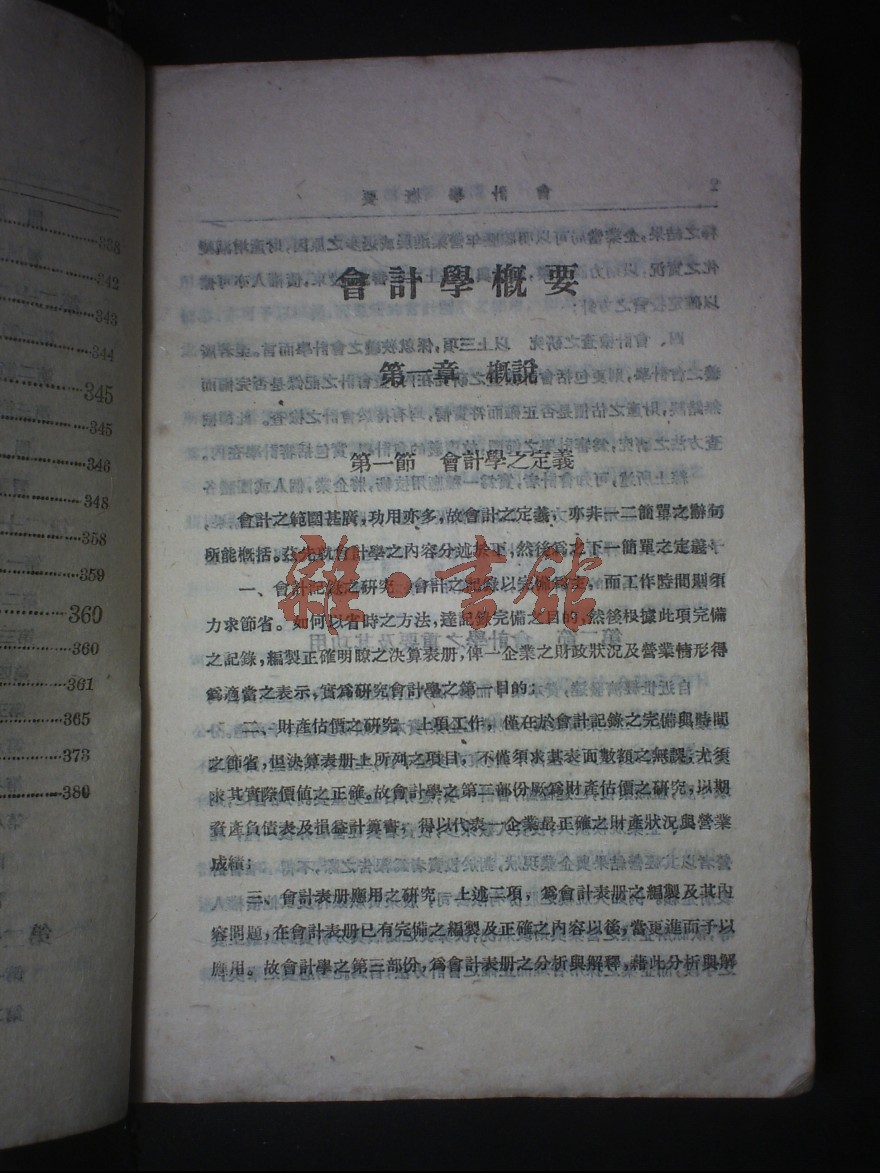 338
342
343
344
345
345
346
348
358
359
360
360
361
365
373
380
會計學概要
第一章 概說
第一節 會計學之定義
會計之範圍甚廣,功用亦多,故會計之定義,亦非一二簡單之辭句
所能概括。茲先就會計學之內容分述於下,然後爲之下一簡單之定義:
一、會計記錄之研究 會計之記錄以完備爲主,而工作時間則須
力求節省。如何以省時之方法,達記錄完備之目的,然後根據此項完備
之記錄,編製正確明瞭之決算表册,俾一企業之財政狀況及營業情形得
爲適當之表示,實爲研究會計學之第一目的;
二、財產估價之研究 上項工作,僅在於會計記錄之完備與時間
之節省,但決算表册上所列之項目,不僅須求其表面數額之無誤,尤須
求其實際價值之正確。故會計學之第二部份厥爲財產估價之研究,以期
資產負債表及損益計算書,得以代表一企業最正確之財產狀況與營業
成績;
三、會計表册應用之研究 上述二項,爲會計表册之編製及其內
容問題,在會計表册已有完備之編製及正確之內容以後,當更進而予以
應用。故會計學之第三部份,爲會計表册之分析與解釋,藉此分析與解
雜·書館